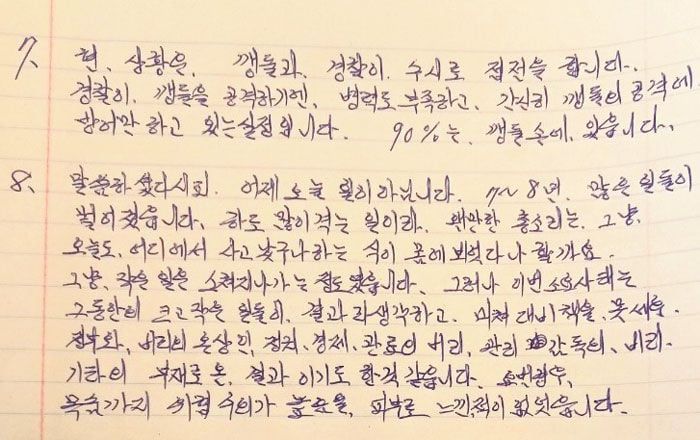 7. 현, 상황은, 갱들과, 경찰이, 수시로 접전을 합니다.
경찰이, 갱들을 공격하기엔, 병력도 부족하고, 간신히 갱들의 공격에
방어만 하고 있는실정입니다. 90%는, 갱들 손에, 있읍니다.
8. 말씀하셨다시피. 어제 오늘 일이 아닙니다. 7~8년, 많은 일들이
벌어졌읍니다, 하도 많이 겪는 일이라. 왠만한 총소리는, 그냥.
오늘도, 어디에서 사고 났구나하는 식이 몸에 뵈었다나 할까요.
그냥, 작은 일은 스쳐지나가는 정도였읍니다. 그러나 이번 소요사태는
그동안의 크고 작은 일들이, 결과라 생각하고. 미쳐 대비책을, 못세울.
정부와, 비리의 온상인, 정치, 경제, 관료의 비리, 관리 감독의, 비리.
기타의 부재로 온, 결과 이기도 한것 같읍니다.
목숨까지 위협 수위가 높음을, 피부로 느낀적이 없었읍니다.